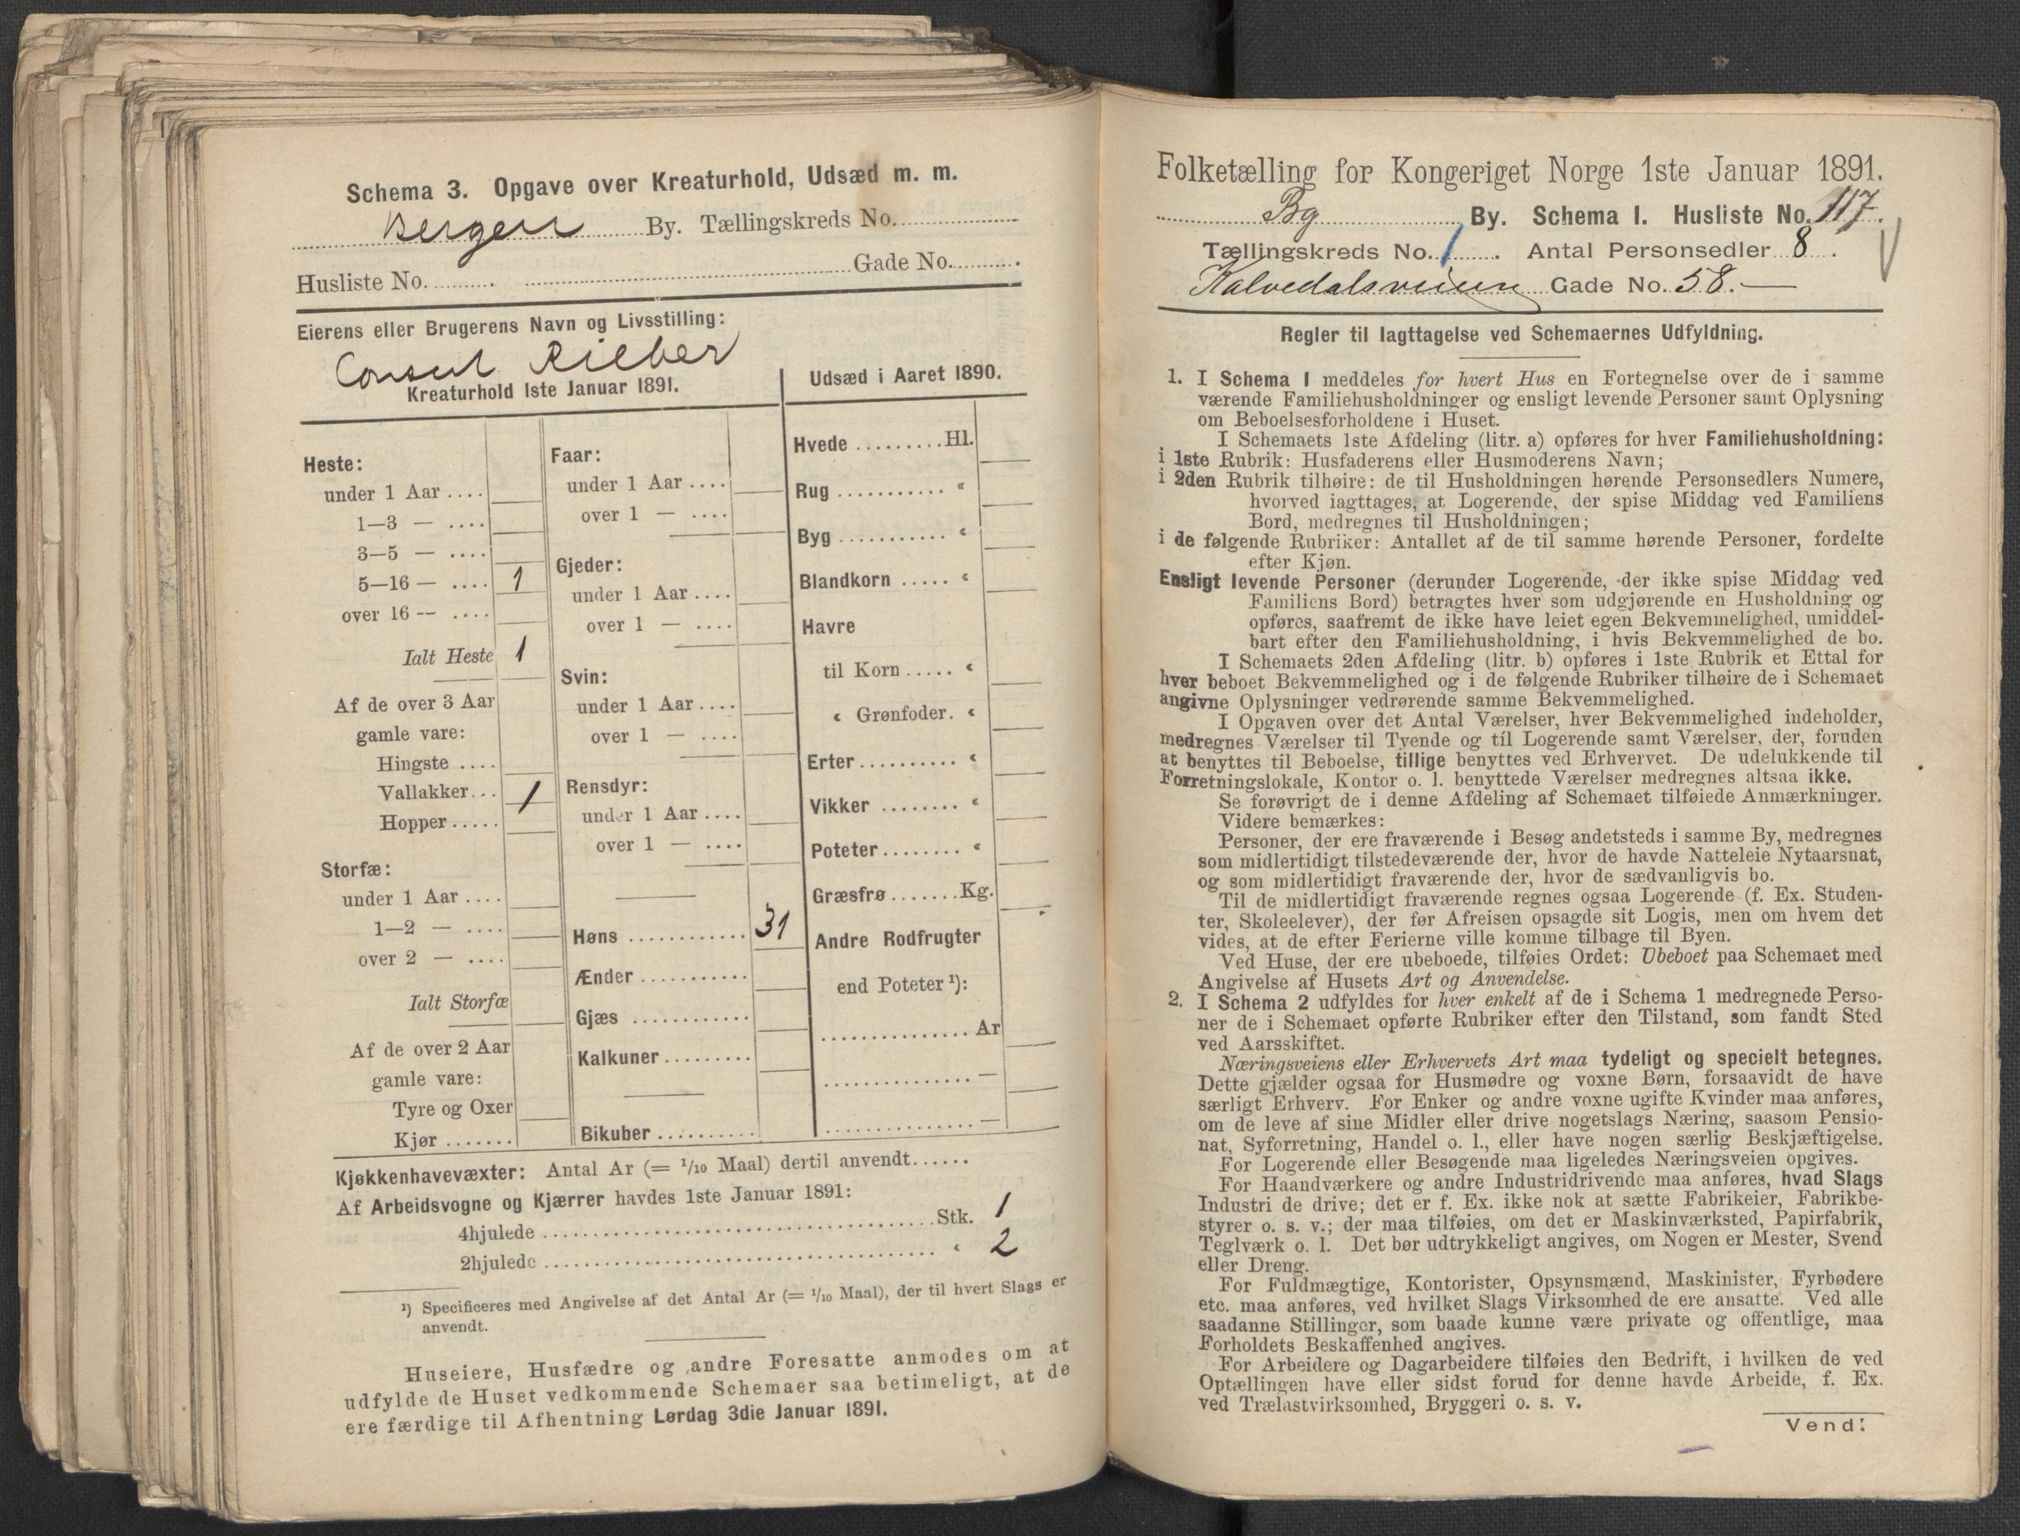 Schema 3. Opgave over Kreaturhold, Udsæd m. m.
Bergen By. Tællingskreds No.
Husliste No. Gade No.
Eierens eller Brugerens Navn og Livsstilling:
Consul Rieber
Kreaturhold 1ste Januar 1891.
Heste:
under 1 Aar
1—3 —
3—5 —
5—16 — 1
over 16 —
Ialt Heste 1
Af de over 3 Aar
gamle vare:
Hingste
Vallakker 1
Hopper
Storfæ:
under 1 Aar
1—2 —
over 2 —
Ialt Storfæ
Af de over 2 Aar
gamle vare:
Tyre og Oxer
Kjør
Faar:
under 1 Aar
over 1 —
Gjeder:
under 1 Aar
over 1 —
Svin:
under 1 Aar
over 1 —
Rensdyr:
under 1 Aar
over 1 —
Høns 31
Ænder
Gjæs
Kalkuner
Bikuber
Udsæd i Aaret 1890.
Hvede Hl.
Rug "
Byg "
Blandkorn "
Havre
til Korn "
" Grønfoder "
Erter "
Vikker "
Poteter "
Græsfrø Kg.
Andre Rodfrugter
end Poteter ¹):
Ar
—
—
Kjøkkenhavevæxter: Antal Ar (= 1/10 Maal) dertil anvendt
Af Arbeidsvogne og Kjærrer havdes 1ste Januar 1891:
4hjulede Stk. 1
2hjulede " 2
¹) Specificeres med Angivelse af det Antal Ar (= 1/10 Maal), der til hvert Slags er
anvendt.
Huseiere, Husfædre og andre Foresatte anmodes om at
udfylde de Huset vedkommende Schemaer saa betimeligt, at de
ere færdige til Afhentning Lørdag 3die Januar 1891.
Folketælling for Kongeriget Norge 1ste Januar 1891.
Bg By. Schema 1. Husliste No. 117.
Tællingskreds No. 1. Antal Personsedler 8.
Kalvedalsveien Gade No. 58.—
Regler til Iagttagelse ved Schemaernes Udfyldning.
1. I Schema 1 meddeles for hvert Hus en Fortegnelse over de i samme
værende Familiehusholdninger og ensligt levende Personer samt Oplysning
om Beboelsesforholdene i Huset.
I Schemaets 1ste Afdeling (litr. a) opføres for hver Familiehusholdning:
i 1ste Rubrik: Husfaderens eller Husmoderens Navn;
i 2den Rubrik tilhøire: de til Husholdningen hørende Personsedlers Numere,
hvorved iagttages, at Logerende, der spise Middag ved Familiens
Bord, medregnes til Husholdningen;
i de følgende Rubriker: Antallet af de til samme hørende Personer, fordelte
efter Kjøn.
Ensligt levende Personer (derunder Logerende, der ikke spise Middag ved
Familiens Bord) betragtes hver som udgjørende en Husholdning og
opføres, saafremt de ikke have leiet egen Bekvemmelighed, umiddel-
bart efter den Familiehusholdning, i hvis Bekvemmelighed de bo.
I Schemaets 2den Afdeling (litr. b) opføres i 1ste Rubrik et Ettal for
hver beboet Bekvemmelighed og i de følgende Rubriker tilhøire de i Schemaet
angivne Oplysninger vedrørende samme Bekvemmelighed.
I Opgaven over det Antal Værelser, hver Bekvemmelighed indeholder,
medregnes Værelser til Tyende og til Logerende samt Værelser, der, foruden
at benyttes til Beboelse, tillige benyttes ved Erhvervet. De udelukkende til
Forretningslokale, Kontor o. l. benyttede Værelser medregnes altsaa ikke.
Se forøvrigt de i denne Afdeling af Schemaet tilføiede Anmærkninger.
Videre bemærkes:
Personer, der ere fraværende i Besøg andetsteds i samme By, medregnes
som midlertidigt tilstedeværende der, hvor de havde Natteleie Nytaarsnat,
og som midlertidigt fraværende der, hvor de sædvanligvis bo.
Til de midlertidigt fraværende regnes ogsaa Logerende (f. Ex. Studen-
ter, Skoleelever), der før Afreisen opsagde sit Logis, men om hvem det
vides, at de efter Ferierne ville komme tilbage til Byen.
Ved Huse, der ere ubeboede, tilføies Ordet: Ubeboet paa Schemaet med
Angivelse af Husets Art og Anvendelse.
2. I Schema 2 udfyldes for hver enkelt af de i Schema 1 medregnede Perso-
ner de i Schemaet opførte Rubriker efter den Tilstand, som fandt Sted
ved Aarsskiftet.
Næringsveiens eller Erhvervets Art maa tydeligt og specielt betegnes.
Dette gjælder ogsaa for Husmødre og voxne Børn, forsaavidt de have
særligt Erhverv. For Enker og andre voxne ugifte Kvinder maa anføres,
om de leve af sine Midler eller drive nogetslags Næring, saasom Pensio-
nat, Syforretning, Handel o. l., eller have nogen særlig Beskjæftigelse.
For Logerende eller Besøgende maa ligeledes Næringsveien opgives.
For Haandværkere og andre Industridrivende maa anføres, hvad Slags
Industri de drive; det er f. Ex. ikke nok at sætte Fabrikeier, Fabrikbe-
styrer o. s. v.; der maa tilføies, om det er Maskinværksted, Papirfabrik,
Teglværk o. l. Det bør udtrykkeligt angives, om Nogen er Mester, Svend
eller Dreng.
For Fuldmægtige, Kontorister, Opsynsmænd, Maskinister, Fyrbødere
etc. maa anføres, ved hvilket Slags Virksomhed de ere ansatte. Ved alle
saadanne Stillinger, som baade kunne være private og offentlige, maa
Forholdets Beskaffenhed angives.
For Arbeidere og Dagarbeidere tilføies den Bedrift, i hvilken de ved
Optællingen have eller sidst forud for denne havde Arbeide, f. Ex.
ved Trælastvirksomhed, Bryggeri o. s. v.
Vend!